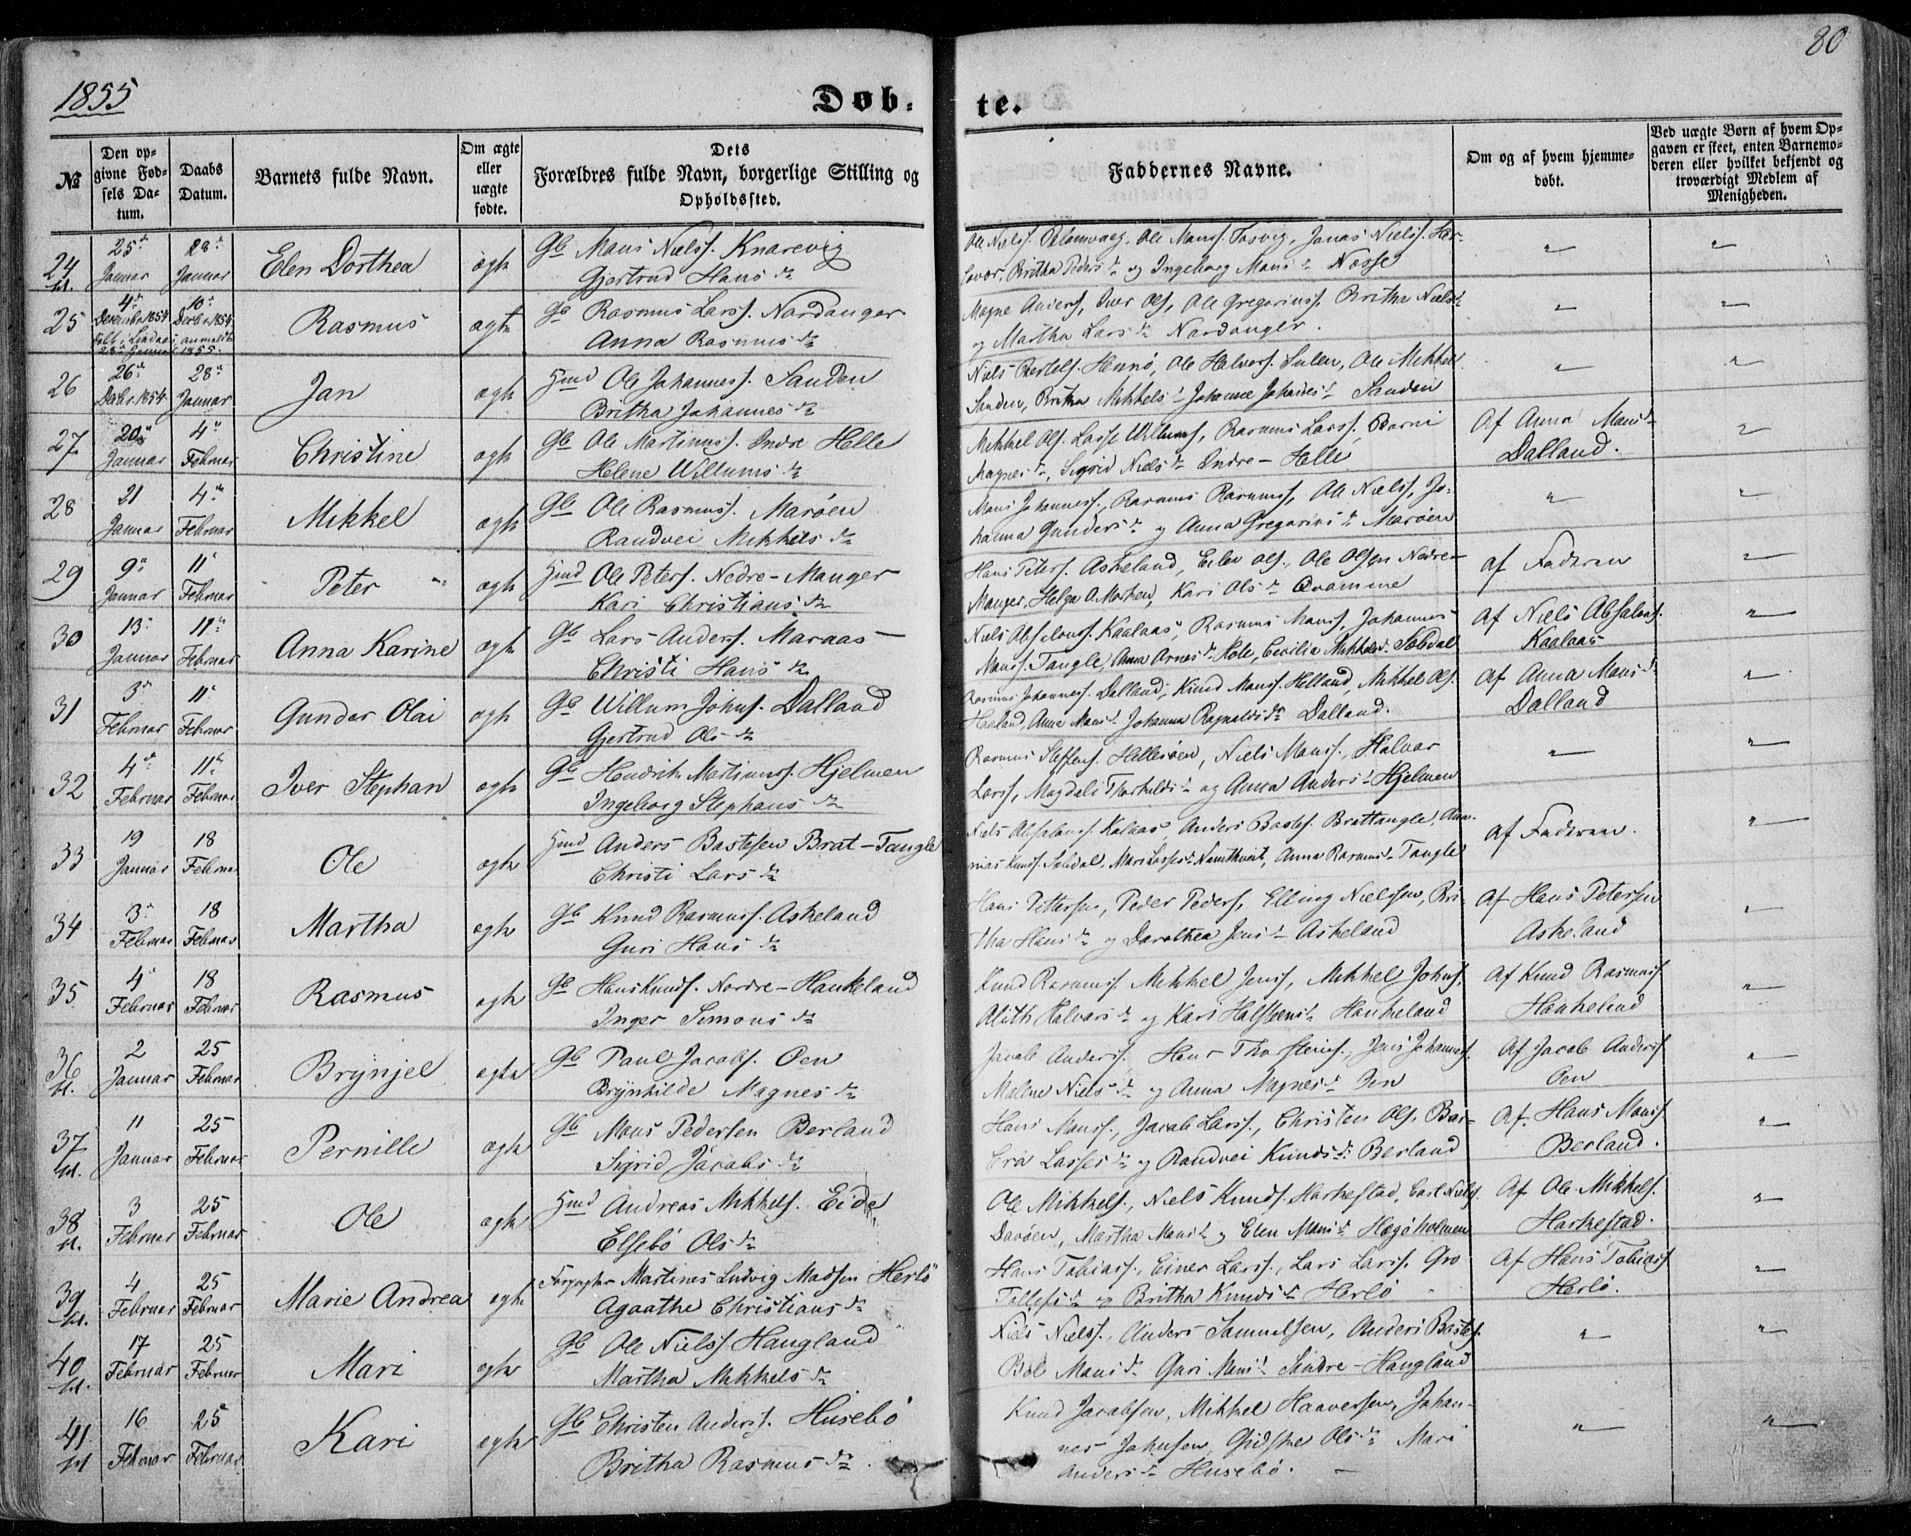 1855
Døb-
te.
80
№
Den opgivne Fødsels Datum.
Daabs Datum.
Barnets fulde Navn.
Om ægte eller uægte fødte.
Dets Forældres fulde Navn, borgerlige Stilling og Opholdssted.
Faddernes Navne.
Om og af hvem hjemmedøbt.
Ved uægte Børn af hvem Opgaven er skeet, enten Barnemoderen eller hvilket bekjendt og troværdigt Medlem af Menigheden.
24 25 Januar 28 Januar Elen Dorthea ægte Gb Mans Nielss. Knarevig
Gjertrud Hans dr
Ole Nielss. Mans Jonas Nielss.
Britha Peders dr og Ingeborg Mans dr Nesse
25 4 December 1854 10 Decbr 1854 Rasmus ægte Gb Rasmus Larss. Nordanger
Januar 1855. Anna Rasmus dr
Magne Anderss, Iver Ols, Ole Gregoriuss. Britha Niels
og Martha Lars dr Nordanger.
26 26 Decbr. 1854 28 Januar Jan ægte Hmd Ole Johanness. Sanden
Britha Johannes dr
Niels Ole Halvors. Ole Mikkel
Sanden, Britha Mikkels Johannes Sanden
27 20 Januar 4 Februar Christine ægte Gb Ole Martinuss. Indre Helle
Helene Willums dr
Mikkel Ols. Lasse Willums, Rasmus Larss,
Magnes dr, Sigrid Niels dr Indre-Helle
Af Anna Mans dr
Dalland.
28 21 Januar 4 Februar Mikkel ægte Gb Ole Rasmuss. Marøen
Randvei Mikkels dr
Mans Johanness., Rasmus Rasmuss, Ole Nielss, Jo-
hanna Gunders dr og Anna Gregorius dr Marøen
29 9 Januar 11 Februar Peter ægte Hmd Ole Peters. Nedre-Manger
Kari Christians dr
Hans Peters. Askeland, Ols., Ole Olsen Nedre-
Manger, Helga Kari Ols dr Qvamme
af Faderen
30 13 Januar 11 Februar Anna Karine ægte Gb Lars Anderss. Maraas
Christi Hans dr
Niels Absalons. Kaalaas, Rasmus Manss, Johannes
Manss. Tangle, Anna Arnes Hole, Cecilia Mikkels. Sæbdal
Af Niels Absalons.
Kaalaas
31 3 Februar 11 Februar Gunder Olai ægte Gb Willum Johns. Dalland
Gjertrud Ols dr
Rasmus Johanness. Dalland, Knud Manss. Helland, Mikkel Ols.
Anna Mans Johanna Ragnalds dr Dalland.
Af Anna Mans dr
Dalland
32 4 Februar 11 Februar Iver Stephan ægte Gb Hendrik Martinuss. Hjelmen
Ingeborg Stephans dr
Rasmus Steffens. Hellesøen, Niels Manss., Halvor
Larss, Magdali og Anna Anders Hjelmen
33 19 Januar 18 Februar Ole ægte Hmd Anders Bastesen Brat-Tangle
Christi Lars dr
Niels Absalons. Kalaas, Anders Bastes. Brattangle,
Knuds. Sæbdal, Mari Lasses Anna Rasmus Tangle
Af Faderen.
34 3 Februar 18 Februar Martha ægte Gb Knud Rasmuss. Askeland
Guri Hans dr
Hans Pettersen, Peder Peders, Elling Nielssen, Bri-
tha Hans dr og Dorothea Jens Askeland
Af Hans Petersen
Askeland
35 4 Februar 18 Februar Rasmus ægte Gb Hans Knuds. Nordre-Haukeland
Inger Simons dr
Knud Rasmuss. Mikkel Jenss, Mikkel Johns.
Halvors dr og Kari Halsteens Haukeland
Af Knud Rasmuss
Haukeland
36 2 Januar 25 Februar Brynjel ægte Gb Paul Jacobs. Oen
Brynhilde Magnes dr
Jacob Anders. Hans Thorsteins., Jens Johannes.
Malene Niels dr og Anna Magnes Oen
Af Jacob Anders
Oen
37 11 Januar 25 Februar Pernille ægte Gb Mons Pedersen Berland
Sigrid Jacobs dr
Hans Manss., Jacob Larss., Christen Ols. Bar-
bra Lasses dr og Randvei Knuds dr Berland
Af Hans Mans
Berland.
38 3 Februar 25 Februar Ole ægte Hmd Andreas Mikkels. Eide
Elsebø Ols dr
Ole Mikkels., Niels Knuds. Harkestad, Carl Niels
Davøen, Martha Mans og Elen Mans Hægøholmen
Af Ole Mikkels.
Harkestad.
39 4 Februar 25 Februar Marie Andrea ægte Forpagter Martines Ludvig Madsen Herlø
Agaathe Christians dr
Hans Tobiass., Einer Larss., Lars Larss. Gro
Tollefs dr og Britha Knuds dr Herlø
Af Hans Tobiass
Herlø.
40 17 Februar 25 Februar Mari ægte Gb Ole Niels Haugland
Martha Mikkels dr
Niels Nielss., Anders Samuelsen, Anders Bastes.
Bøl Mans dr Guri Mans Søndre-Haugland
41 16 Februar 25 Februar Kari ægte Gb Christen Anders. Husebø
Britha Rasmus dr.
Knud Jacobsen, Mikkel Haaversen, Johan-
nes Johnsen, Gidske Ols dr Mari
Anders dr Husebø.